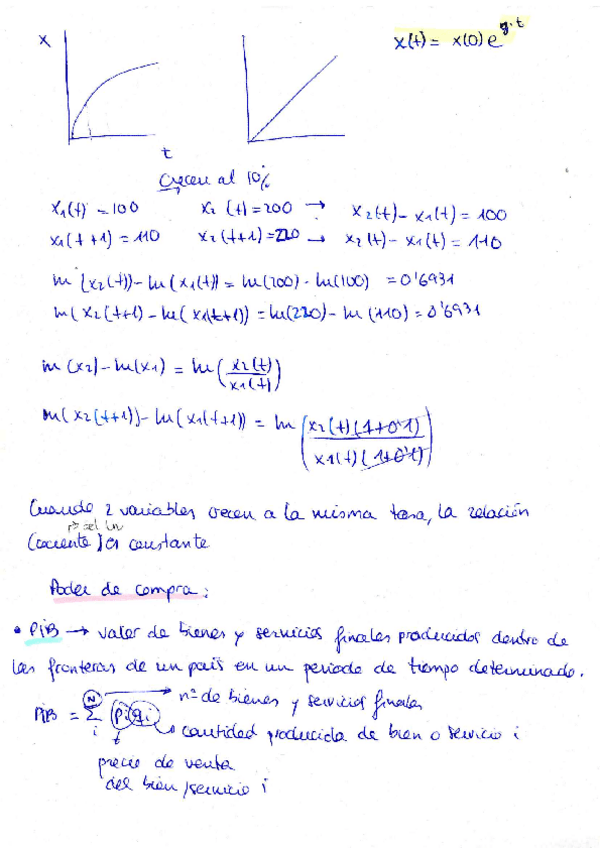 x
x(t) = x(0) e^g·t
t
Crecen al 10%
x1(t) = 100 x2 (t) = 200 → x2(t) - x1(t) = 100
x1(t+1) = 110 x2(t+1) = 220 → x2(t) - x1(t) = 110
ln (x2(t)) - ln(x1(t)) = ln(200) - ln(100) = 0'6931
ln(x2(t+1) - ln(x1(t+1)) = ln(220) - ln(110) = 0'6931
ln(x2) - ln(x1) = ln(x2(t)/x1(t))
ln(x2(t+1)) - ln(x1(t+1)) = ln(x2(t)(1+0'1)/x1(t)(1+0'1))
Cuando 2 variables crecen a la misma tasa, la relación
(cociente) es constante
Poder de compra:
• PIB → valor de bienes y servicios finales producidos dentro de
las fronteras de un país en un periodo de tiempo determinado.
N → nº de bienes y servicios finales
PIB = Σ pi qi → cantidad producida de bien o servicio i
i
precio de venta
del bien/servicio i